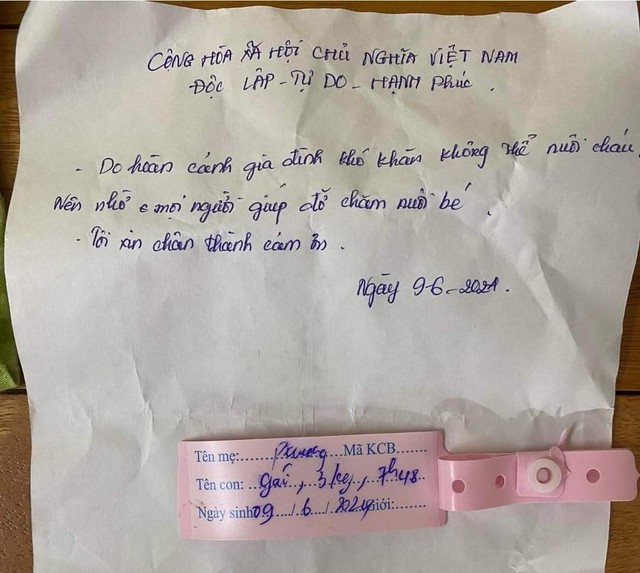 CỘNG HÒA XÃ HỘI CHỦ NGHĨA VIỆT NAM
ĐỘC LẬP - TỰ DO - HẠNH PHÚC.
- Do hoàn cảnh gia đình khó khăn không thể nuôi cháu
Nên nhờ mọi người giúp đỡ chăm nuôi bé.
- Tôi xin chân thành cám ơn.
Ngày 9-6-2021.
Tên mẹ:.......Phương...Mã KCB.......
Tên con: ...Gái, 3kg, 7h48..
Ngày sinh 09..../..6.../..2021 giới:.......